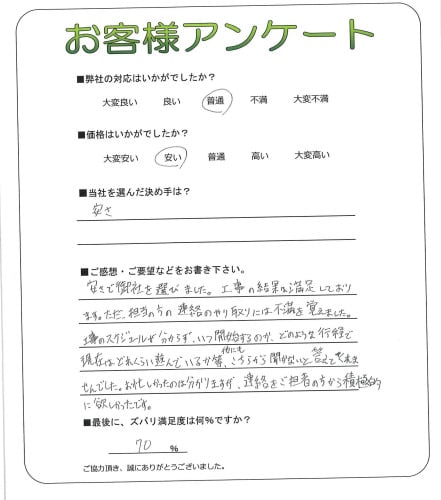 お客様アンケート
■弊社の対応はいかがでしたか?
大変良い 良い 普通 不満 大変不満
■価格はいかがでしたか?
大変安い 安い 普通 高い 大変高い
■当社を選んだ決め手は?
安さ
■ご感想・ご要望などをお書き下さい。
安さで御社を選びました。工事の結果は満足しており
ます。ただ、担当の方の連絡のやり取りには不満を覚えました。
工事のスケジュールが分からず、いつ開始するのか、どのような行程で
現在はどれくらい進んでいるか等、他にもこちらから聞かないと答えてくれま
せんでした。お忙しかったのは分かりますが、連絡をご担当の方から積極的
に欲しかったです。
■最後に、ズバリ満足度は何%ですか?
70 %
ご協力頂き、誠にありがとうございました。